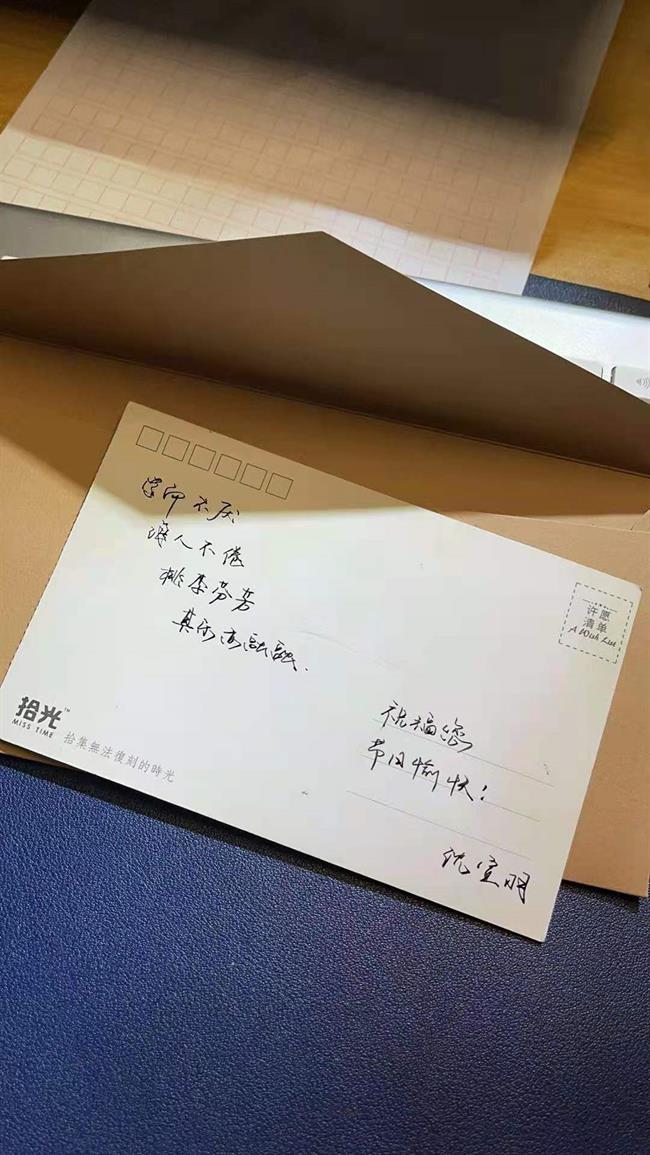 学而不厌
诲人不倦
桃李芬芳
其乐亦融融.
许愿
清单
A Wish List
祝福您
节日愉快！
宣明
拾光™
MISS TIME
拾集無法復刻的時光